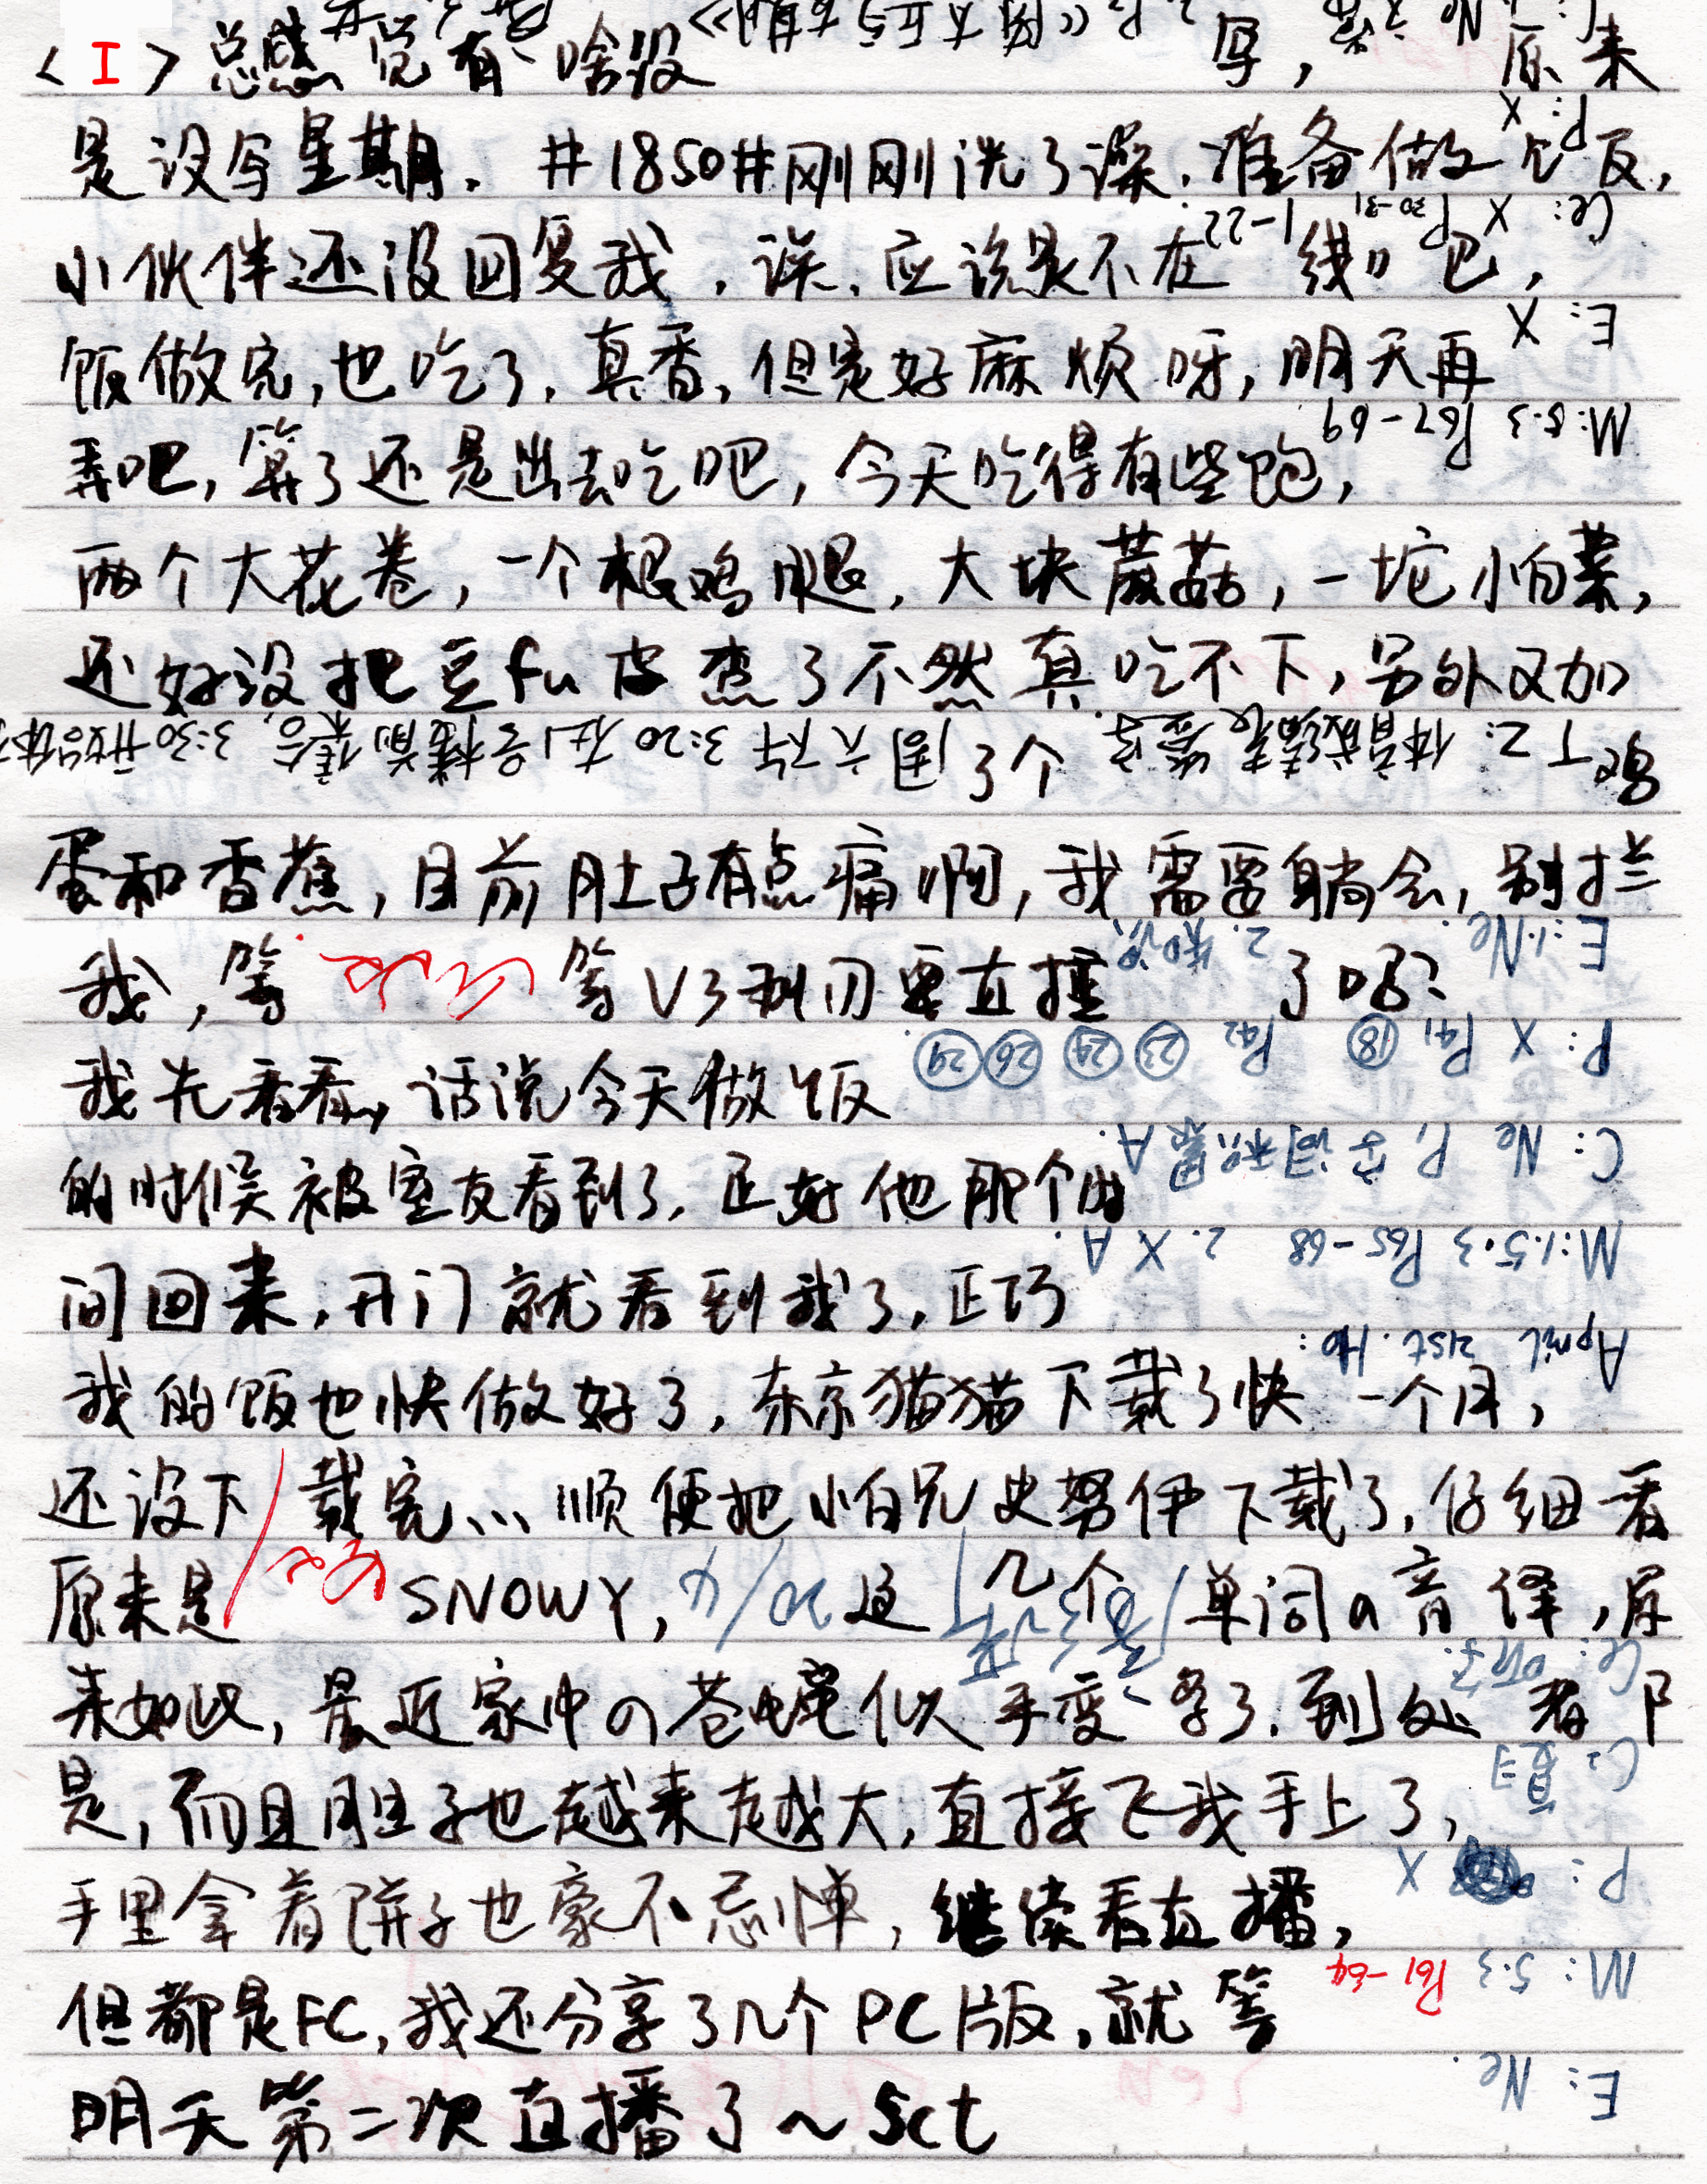 <I>总感觉有啥没写，原来
是没写星期．#1850#刚刚洗了澡．准备做个饭，
小伙伴还没回复我．诶．应该是不在线吧，
饭做完，也吃了．真香，但是好麻烦呀，明天再
弄吧，算了还是出去吃吧，今天吃得有些饱，
两个大花卷，一个根鸡腿，大块蘑菇，一坨小白菜，
还好没把豆fu皮煮了不然真吃不下，另外又加
了个鸡
蛋和香蕉，目前肚子有点痛啊，我需要躺会，别拦
我，等等V3到刃要直播了吗？
我先看看，话说今天做饭
的时候被室友看到了．正好他那个时
间回来，开门就看到我了，正巧
我的饭也快做好了，东京猫猫下载了快一个月，
还没下载完...顺便把小白兄史努伊下载了，仔细看
原来是SNOWY，这几个单词の音译，原
来如此，最近家中の苍蝇似乎变多了．到处都
是，而且胆子也越来越大，直接飞我手上了，
手里拿着饼子也豪不忌惮，继续看直播，
但都是FC，我还分享了几个PC版，就等
明天第二次直播了～Sct
E: Ne
M: 5·3 P61-64
P: X
C: 复习
Ce: 听写
20/4
April 21st. Mo:
M: 1. 5·3 P65-68 2. X A.
C: Ne P1 字词积累 A.
P: X P41 ⑱ P42 ㉓ ㉔ ㉖ ㉙.
E: 1. Ne. 2. 知识
M: 5·3 P67-69
E: X
Ce: X P30-31 1-22.
P: X